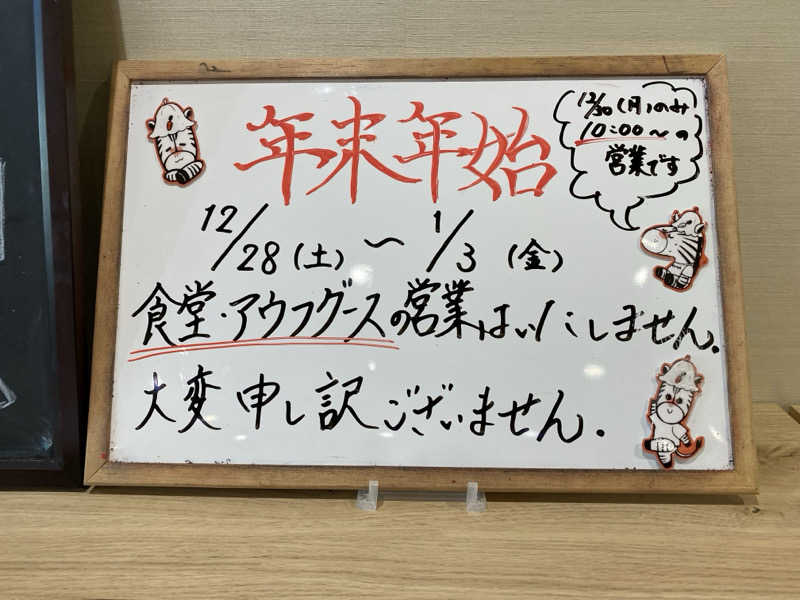 年末年始
12/28(土)〜1/3(金)
食堂・アウフグースの営業はいたしません.
大変申し訳ございません.
12/30(月)のみ
10:00〜の
営業です